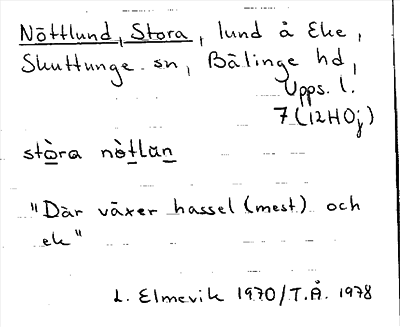 Nöttlund, Stora, lund å Eke,
Skuttunge sn, Bälinge hd,
Upps. l.
7 (12H0j)
stòra nòtlun
"Där växer hassel (mest) och
ek"
L. Elmevik 1970/T.Å. 1978